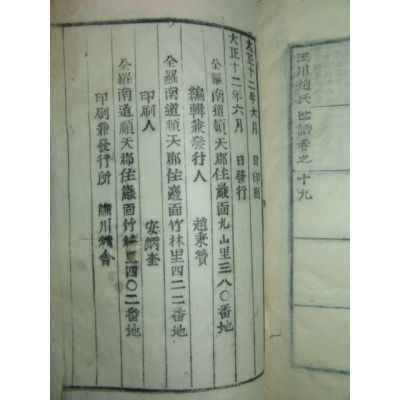 玉川趙氏世譜卷之十九
大正十二年六月 日印刷
大正十二年六月 日發行
全羅南道順天郡住巖面九山里三八〇番地
編輯兼發行人 趙秉贊
全羅南道順天郡住巖面竹林里四二二番地
印刷人 安炳奎
全羅南道順天郡住巖面竹林里四〇二番地
印刷兼發行所